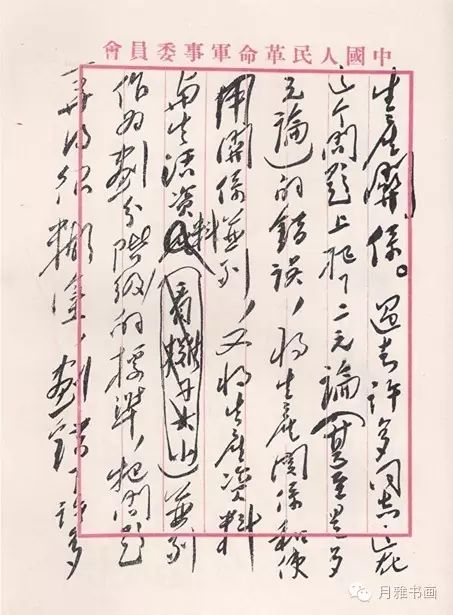 中國人民革命軍事委員會
生產關係。過去許多同志,在
这个問題上犯了二元論(甚至是多
元論)的錯誤,将生産関係和使
用關係並列,又将生産資料
与生活資料並列
作为劃分階級的標準,把問題
弄得很糊塗,劃錯了許多
月雅书画